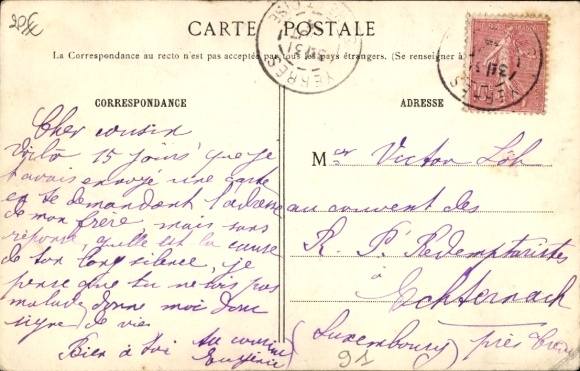 CARTE POSTALE
La Correspondance au recto n'est pas acceptée par tous les pays étrangers. (Se renseigner à
CORRESPONDANCE
Cher cousin
Voilà 15 jours que je
t'avais envoyé une carte
en te demandant l'adresse
de mon frère mais sans
réponse, quelle est la cause
de ton long silence, je
pense que tu ne sois pas
malade donne moi donc
signe de vie
Bien à toi ta cousine
Eugénie
ADRESSE
Mer Victor Löh
au couvent des
R. P. Rédemptoristes
à
Echternach
(Luxembourg) près
91
YERRES